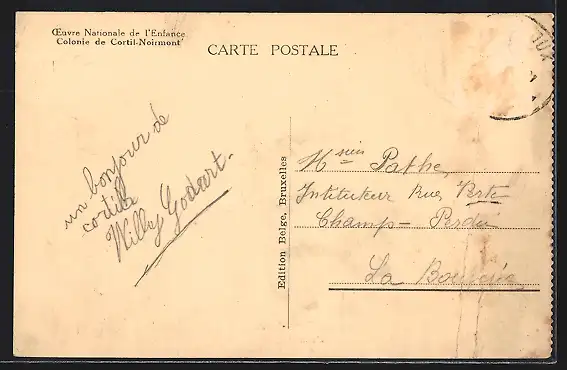 Œuvre Nationale de l'Enfance
Colonie de Cortil-Noirmont
CARTE POSTALE
un bonjour de
cortil
Willy Godart.
Edition Belge, Bruxelles
Msieu Pathe,
Instituteur Rue Verte
Champ-Perdu
La Bouverie